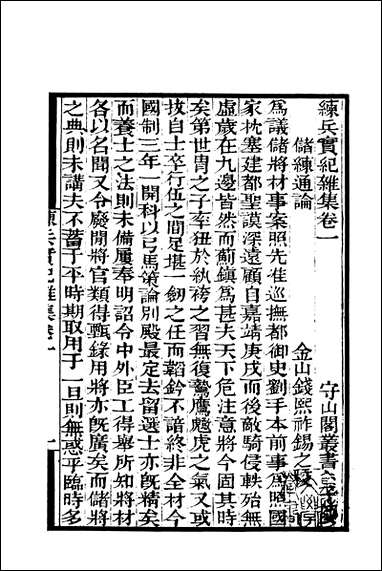 練兵實紀雜集卷一
守山閣叢書 子部
金山錢熙祚錫之校
儲練通論
為議儲將材事案照先准巡撫都御史劉手本前事爲照國
家枕塞建都聖謨深遠顧自嘉靖庚戌而後敵騎侵軼殆無
虛歲在九邊皆然而薊鎮爲甚夫天下危注意將今固其時
矣第世胄之子率狃於紈袴之習無復鷙鷹虓虎之氣又或
拔自士卒行伍之間足堪一劒之任而韜鈐不諳終非全材今
國制三年一開科以弓馬策論別殿最定去留選士亦旣精矣
而養士之法則未備屢奉明詔令中外臣工得舉所知將材
各以名聞又令廢閒將官類得甄錄用將亦旣廣矣而儲將
之典則未講夫不蓄于平時期取用于一旦則無惑乎臨時多
練兵實紀雜集 卷一
一